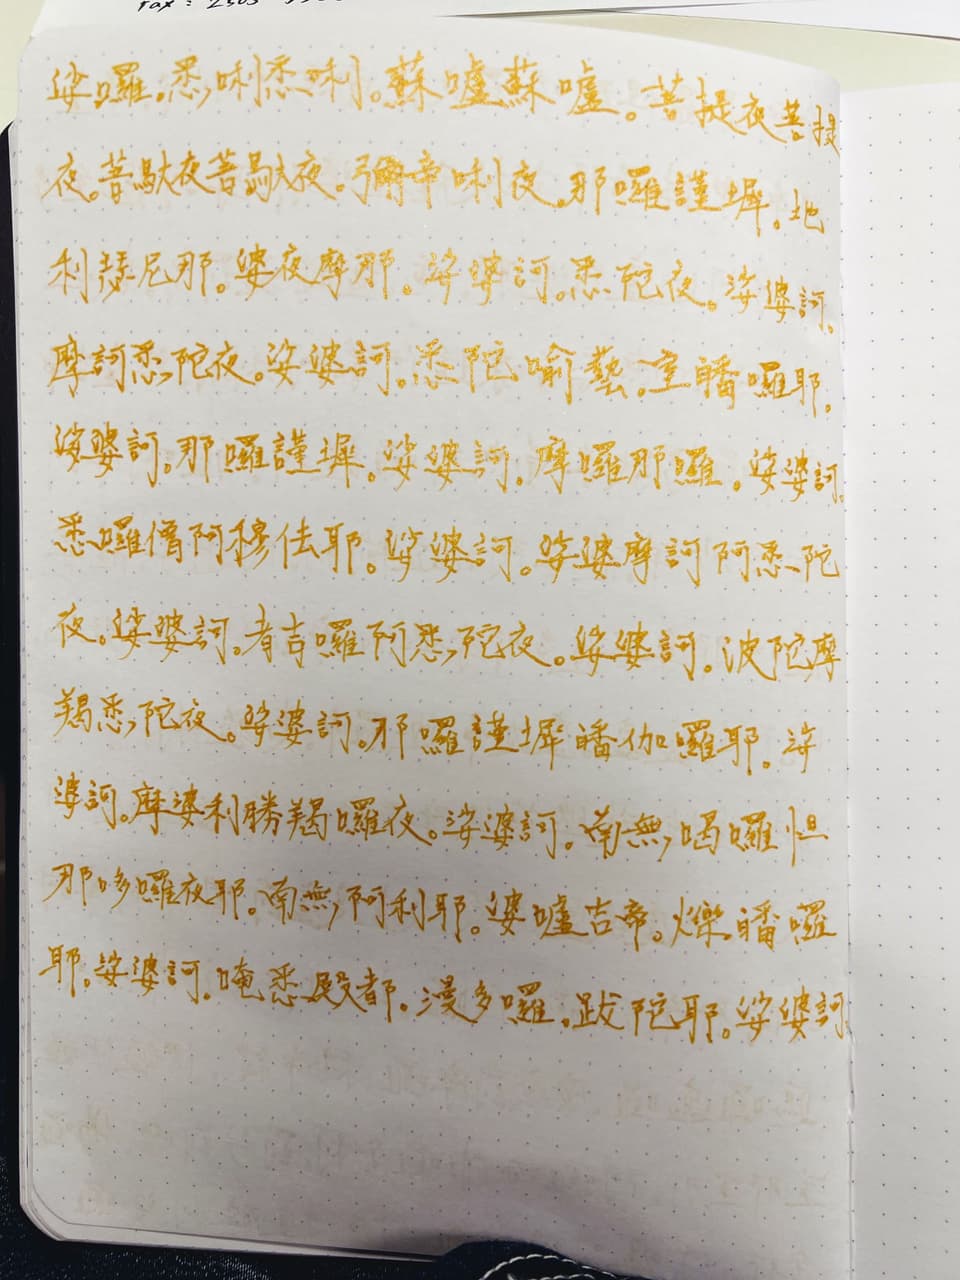 Fax: 2505
娑囉。悉唎悉唎。蘇嚧蘇嚧。菩提夜菩提
夜。菩馱夜菩馱夜。彌帝唎夜。那囉謹墀。地
利瑟尼那。婆夜摩那。娑婆訶。悉陀夜。娑婆訶。
摩訶悉陀夜。娑婆訶。悉陀喻藝。室皤囉耶。
娑婆訶。那囉謹墀。娑婆訶。摩囉那囉。娑婆訶。
悉囉僧阿穆佉耶。娑婆訶。娑婆摩訶阿悉陀
夜。娑婆訶。者吉囉阿悉陀夜。娑婆訶。波陀摩
羯悉陀夜。娑婆訶。那囉謹墀皤伽囉耶。娑
婆訶。摩婆利勝羯囉夜。娑婆訶。南無喝囉怛
那哆囉夜耶。南無阿利耶。婆嚧吉帝。爍皤囉
耶。娑婆訶。唵悉殿都。漫多囉。跋陀耶。娑婆訶